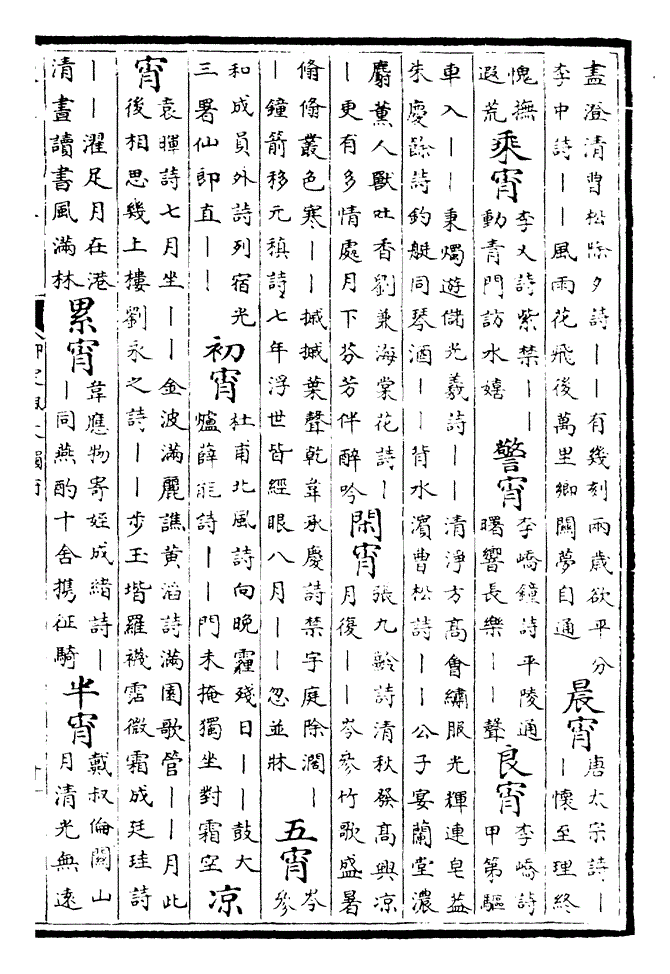 盡澄清曹松除夕詩｜｜有幾刻兩歲欲平分
李中詩｜｜風雨花飛後萬里鄉關夢自通
晨宵
唐太宗詩｜
｜懷至理終
愧撫
遐荒
乘宵
李乂詩紫禁｜｜
動青門訪水嬉
警宵
李嶠鐘詩平陵通
曙響長樂｜｜聲
良宵
李嶠詩
甲第驅
車入｜｜秉燭遊儲光羲詩｜｜清淨方高會繡服光輝連皂蓋
朱慶餘詩釣艇同琴酒｜｜背水濱曹松詩｜｜公子宴蘭堂濃
麝薰人獸吐香劉兼海棠花詩｜
｜更有多情處月下芬芳伴醉吟
閑宵
張九齡詩清秋發高興涼
月復｜｜岑參竹歌盛暑
翛翛叢色寒｜｜摵摵葉聲乾韋承慶詩禁宇庭除濶｜
｜鐘箭移元稹詩七年浮世皆經眼八月｜｜忽並牀
五宵
岑
參
和成員外詩列宿光
三署仙郎直｜｜
初宵
杜甫北風詩向晚霾殘日｜｜鼓大
爐薛能詩｜｜門未掩獨坐對霜空
涼
宵
袁暉詩七月坐｜｜金波滿麗譙黃滔詩滿園歌管｜｜月此
後相思幾上樓劉永之詩｜｜步玉堦羅襪霑微霜成廷珪詩
｜｜濯足月在港
清晝讀書風滿林
累宵
韋應物寄姪成緒詩｜
｜同燕酌十舍攜征騎
半宵
戴叔倫關山
月清光無遠